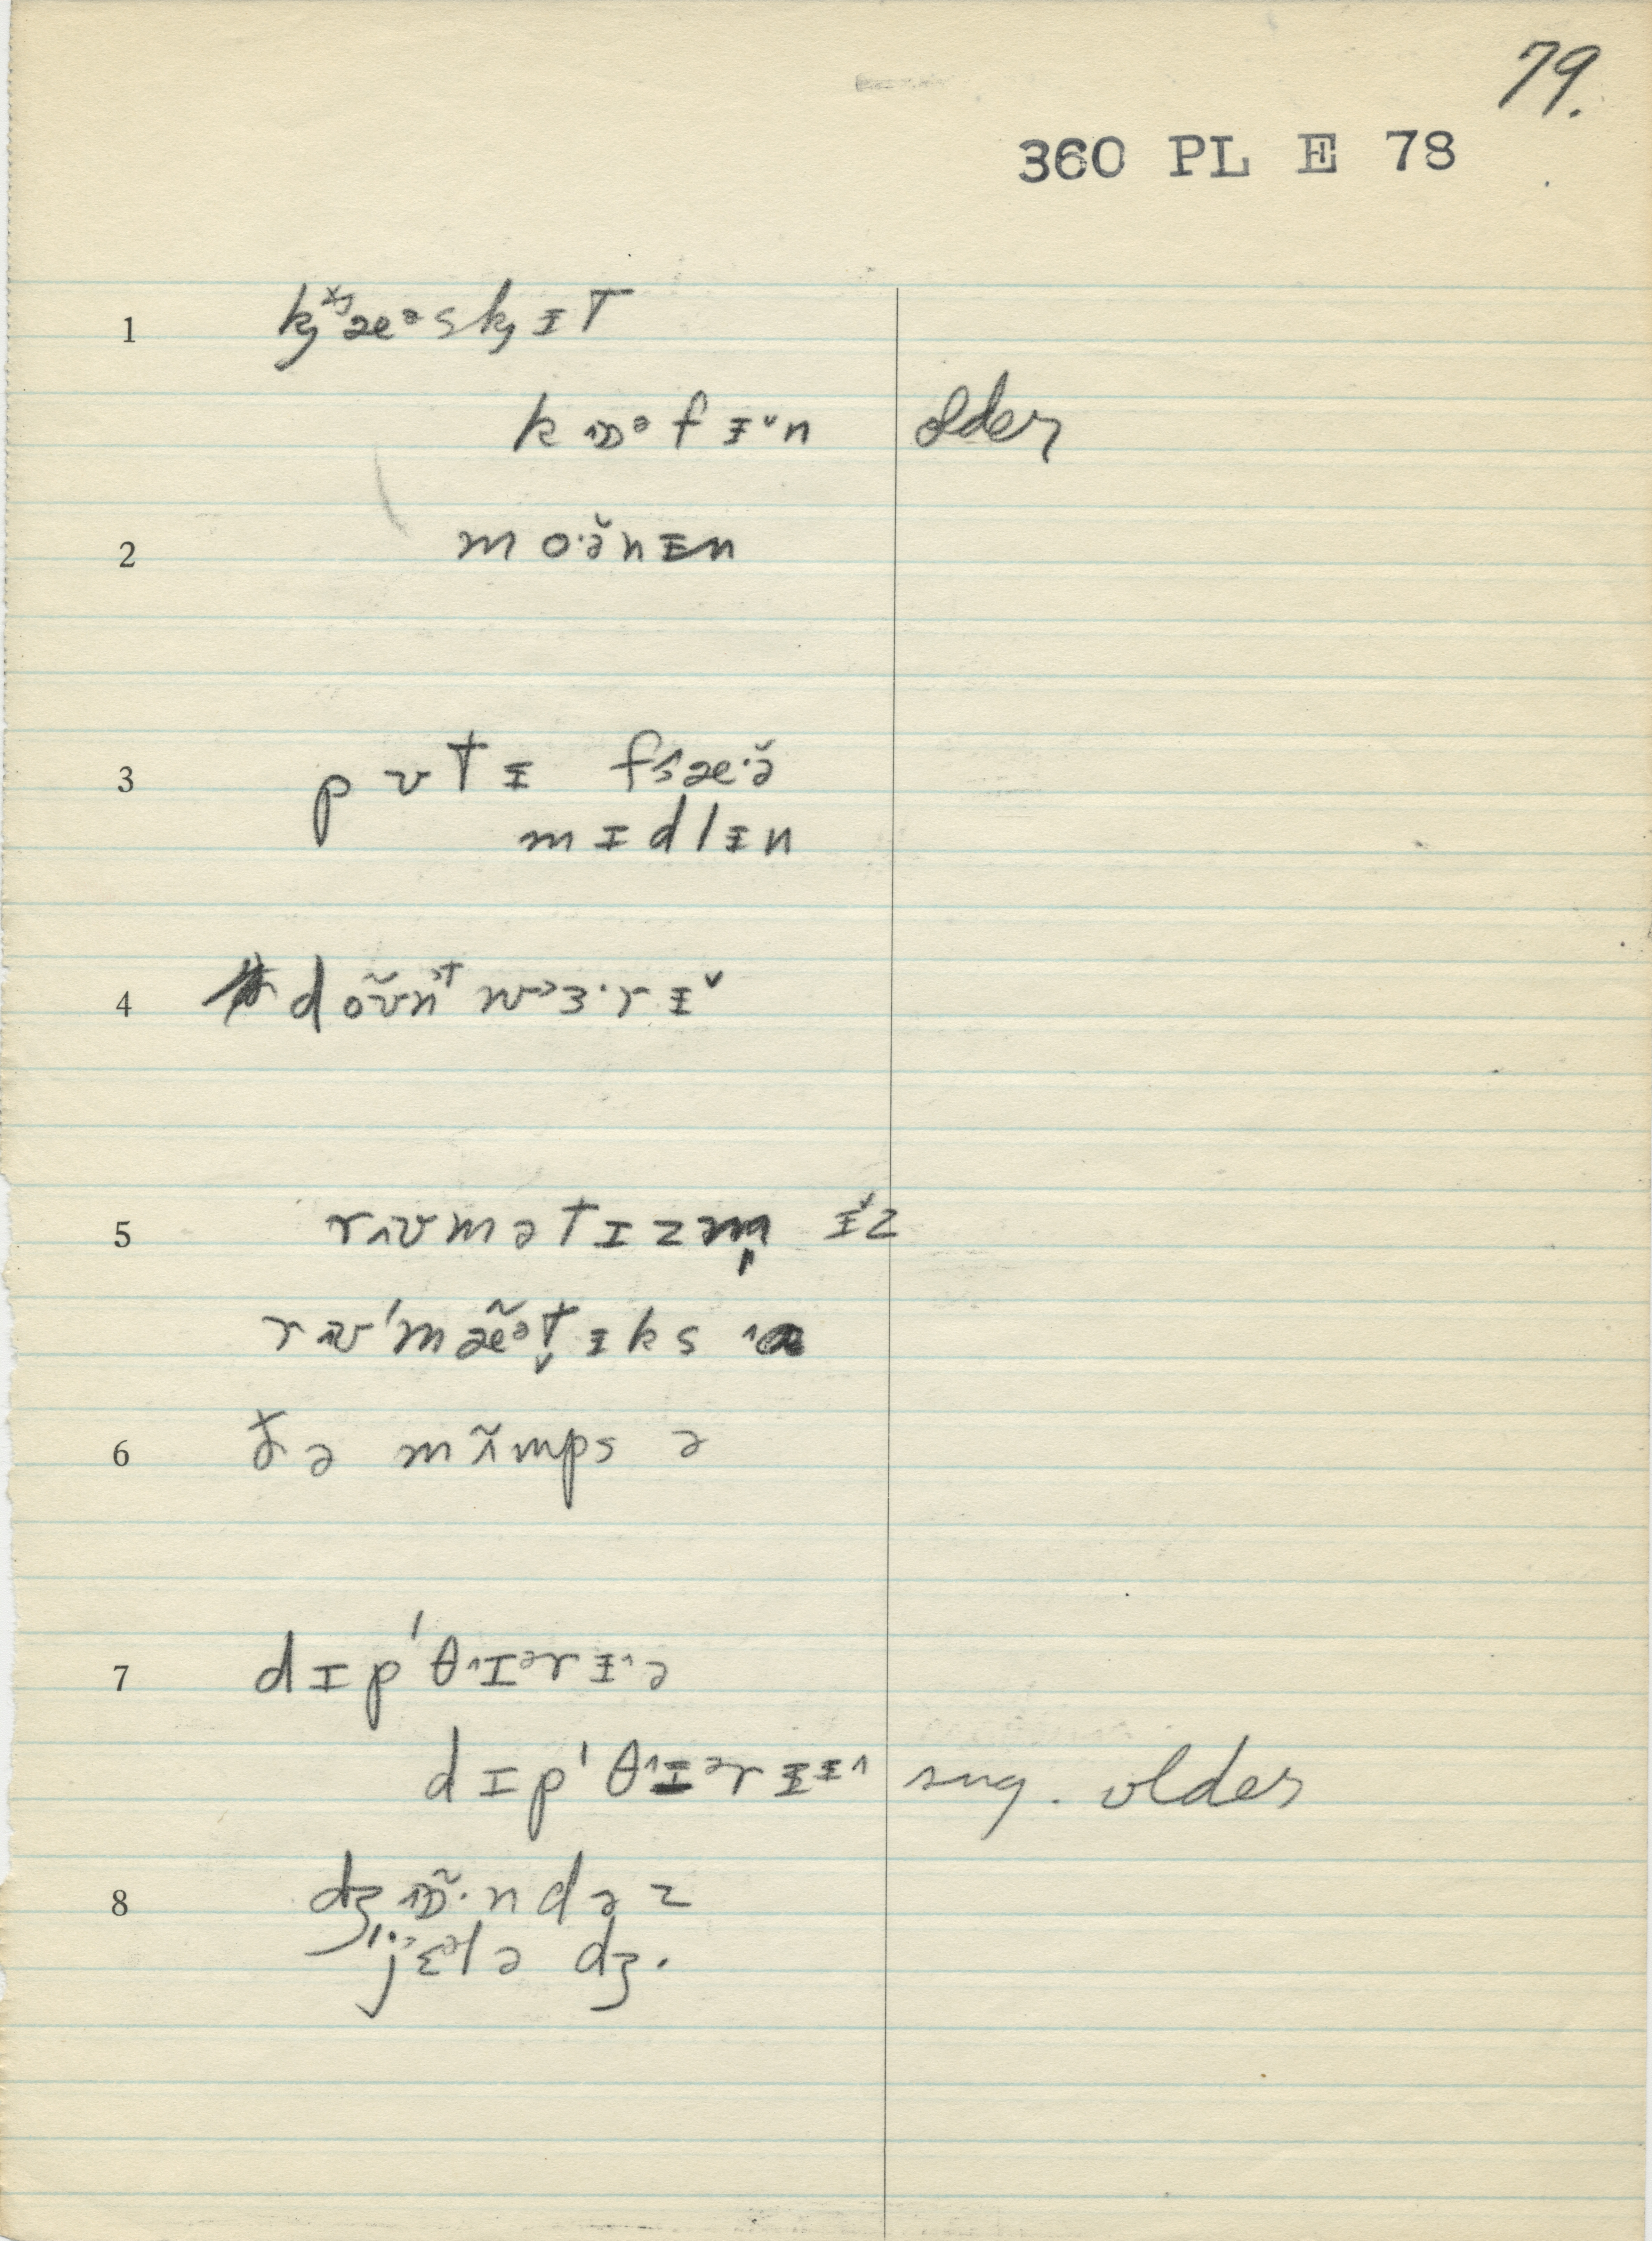 79.
360 PL E 78
1 k̡ˣʲæᵊsk̡ɪt
kɒᵊfɨ˅n older
2 mo·ə̆nɨn
3 pʊtɪ fᶊæ·ə̆
mɪdlɨn
4 dõʊ̃nᵗ wɜ·rɨ˅
5 rʌʊmətɪzm̩ ɨ˅z
rʊˈmæ̃ᵊt̬ɨks
6 ðə mʌ̃mps ə
7 dɪpˈθ˄ɪᵊrɨ˄ə
dɪpˈθ˄ɪᵊrɨɨ˄ sug. older
8 dʒɒ̃·ndəz
ˈjɛᵊlə dʒ.